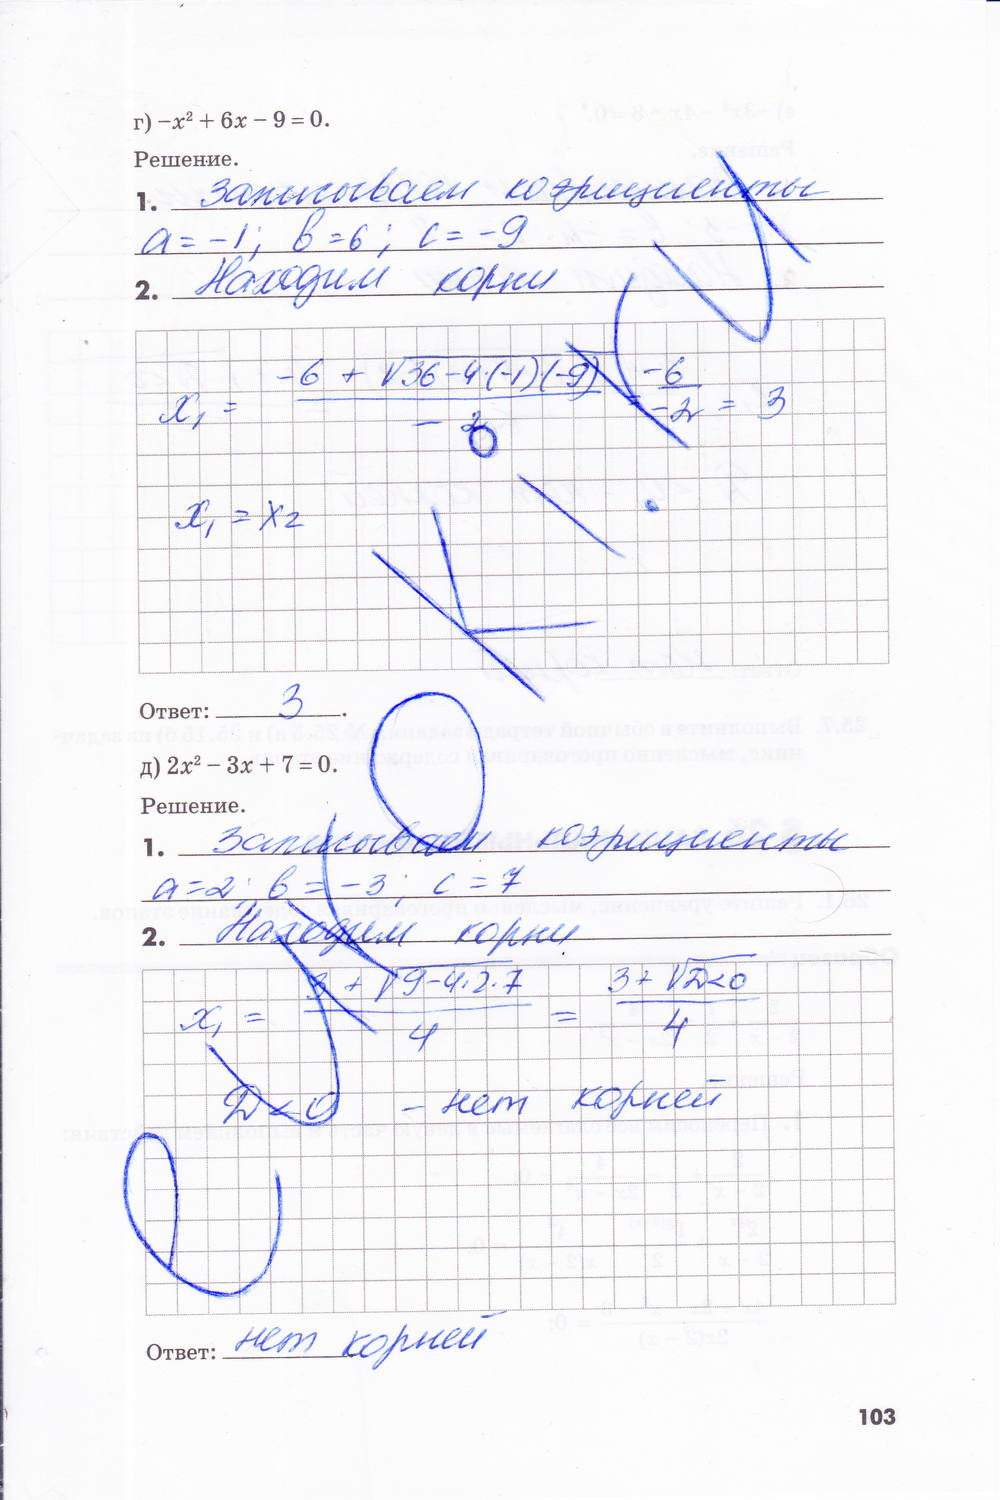 г) −x² + 6x − 9 = 0.
Решение.
1. Записываем коэфициенты
a = −1; b = 6; c = −9
2. Находим корни
x₁ = (−6 + √(36−4·(−1)·(−9)))/(−2) = −6/−2 = 3
x₁ = x₂
Ответ: 3.
д) 2x² − 3x + 7 = 0.
Решение.
1. Записываем коэфициенты
a = 2; b = −3; c = 7
2. Находим корни
x₁ = (3 + √(9−4·2·7))/4 = (3 + √(D<0))/4
D < 0 − нет корней
Ответ: нет корней
103